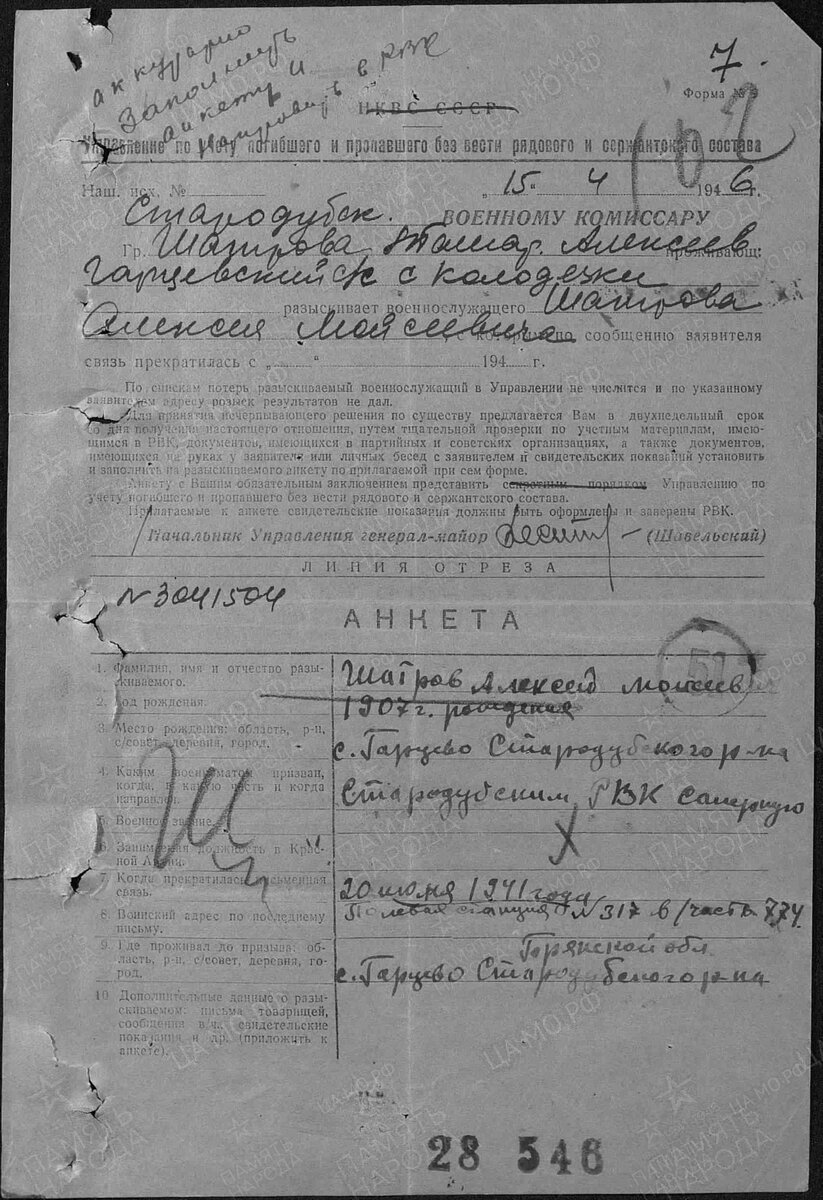 7.
аккуратно
Заполнить
анкету и
направить в РВК
Форма №
НКВС СССР
Управление по учету погибшего и пропавшего без вести рядового и сержантского состава
Наш. исх. № „15. 4 1946 г.
Стародубск. ВОЕННОМУ КОМИССАРУ
Гр. Шатрова Алексеев проживающ:
Гарцевский с/с с Колодезки
разыскивает военнослужащего Шатрова
Алексея Мойсеевича по сообщению заявителя
связь прекратилась с „ “ 194 г.
По спискам потерь разыскиваемый военнослужащий в Управлении не числится и по указанному
заявителем адресу розыск результатов не дал.
Для принятия исчерпывающего решения по существу предлагается Вам в двухнедельный срок
со дня получения настоящего отношения, путем тщательной проверки по учетным материалам, имею-
щимся в РВК, документов, имеющихся в партийных и советских организациях, а также документов,
имеющихся на руках у заявителя или личных бесед с заявителем и свидетельских показаний установить
и заполнить на разыскиваемого анкету по прилагаемой при сем форме.
Анкету с Вашим обязательным заключением представить секретным порядком Управлению по
учету погибшего и пропавшего без вести рядового и сержантского состава.
Прилагаемые к анкете свидетельские показания должны быть оформлены и заверены РВК.
Начальник Управления генерал-майор (Шавельский)
ЛИНИЯ ОТРЕЗА
N3041504
АНКЕТА
1. Фамилия, имя и отчество разы-
скиваемого.
Шатров Алексей Мойсеев
2. Год рождения.
1907 г. рождения
3. Место рождения: область, р-н,
с/совет, деревня, город.
с. Гарцево Стародубского р-на
4. Каким военкоматом призван,
когда, в какую часть и когда
направлен.
Стародубским РВК саперную
5. Военное звание.
6. Занимаемая должность в Крас-
ной Армии.
7. Когда прекратилась письменная
связь.
20 июня 1941 года
8. Воинский адрес по последнему
письму.
Полевая станция N317 в/часть 774.
9. Где проживал до призыва: об-
ласть, р-н, с/совет, деревня, го-
род.
Брянской обл
с. Гарцево Стародубского р-на
10. Дополнительные данные о разы-
скиваемом: письма товарищей,
сообщения в/ч, свидетельские
показания и др. (приложить к
анкете).
Ш
28 546
ПАМЯТЬ
НАРОДА
ЦАМО.РФ